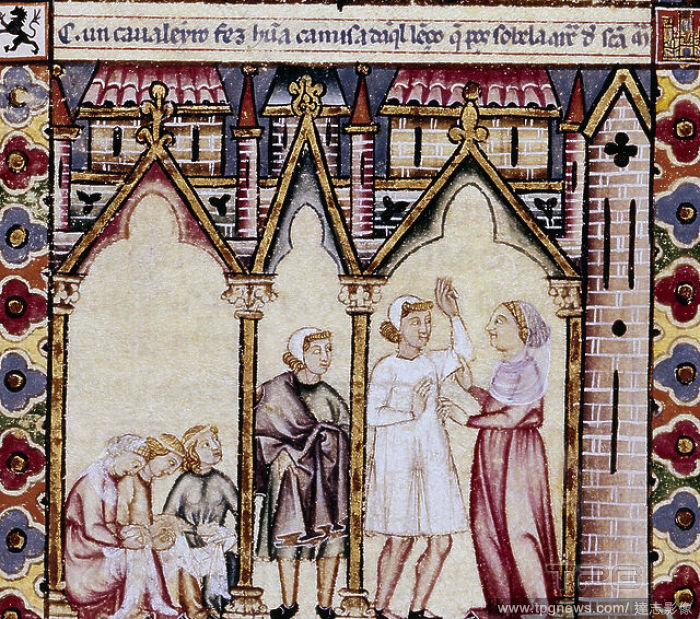 C. un caualeyro fez hũa camisa daq̃l lẽço q̃ pos sobela
www.tpgnews.com/ 達志影像